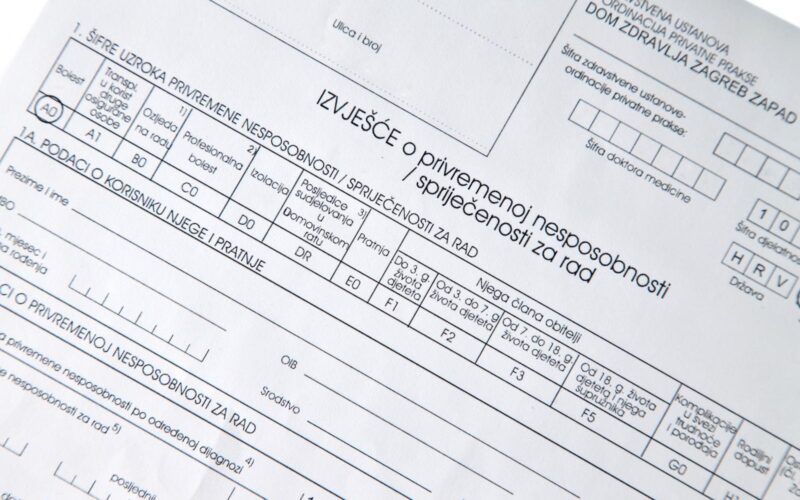 STVENA USTANOVA
ORDINACIJA PRIVATNE PRAKSE
DOM ZDRAVLJA ZAGREB ZAPAD
Ulica i broj
Šifra zdravstvene ustanove-
ordinacije privatne prakse:
Šifra doktora medicine
1 0
Šifra djelatno
H R V
Država
IZVJEŠĆE o privremenoj nesposobnosti
/ spriječenosti za rad
1. ŠIFRE UZROKA PRIVREMENE NESPOSOBNOSTI / SPRIJEČENOSTI ZA RAD
Bolest
A0
Transpl.
u korist
druge
osigurane
osobe
A1
Ozljeda 1)
na radu
B0
Profesionalna 2)
bolest
C0
Izolacija
D0
Posljedice 3)
sudjelovanja
u
Domovinskom
ratu
DR
Pratnja
E0
Njega člana obitelji
Do 3. g.
života
djeteta
F1
Od 3. do 7. g
života djeteta
F2
Od 7. do 18. g.
života djeteta
F3
Od 18. g. života
djeteta i njega
supružnika
F5
Komplikacije
u svezi
trudnoće
i porođaja
G0
Rodiljni
dopust
1A. PODACI O KORISNIKU NJEGE I PRATNJE
Prezime i ime
BO
mjesec i
rođenja
OIB
Srodstvo
CI O PRIVREMENOJ NESPOSOBNOSTI ZA RAD
privremene nesposobnosti po određenoj dijagnozi 4)
e nesposobnosti za rad 5)
posljednji